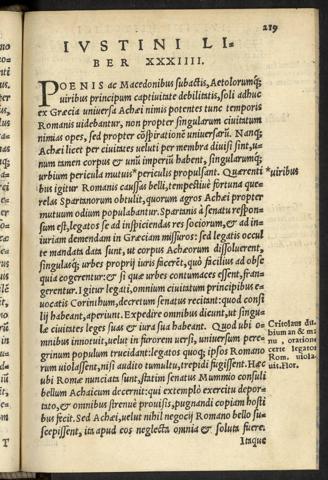 219
IVSTINI LI-
BER XXXIIII.
POENIS ac Macedonibus subactis, Aetolorumq́;
uiribus principum captiuitate debilitatis, soli adhuc
ex Græcia uniuersa Achæi nimis potentes tunc temporis
Romanis uidebantur, non propter singularum ciuitatum
nimias opes, sed propter cōspirationē uniuersarū. Nanq́;
Achæi licet per ciuitates ueluti per membra diuisi sint, u-
num tamen corpus & unū imperiū habent, singularumq́;
urbium pericula mutuis* periculis propulsant. Quærenti
*uiribus
bus igitur Romanis caussas belli, tempestiuè fortuna que-
relas Spartanorum obtulit, quorum agros Achæi propter
mutuum odium populabantur. Spartanis à senatu respon-
sum est, legatos se ad inspiciendas res sociorum, & ad in-
iuriam demendam in Græciam missuros: sed legatis occul
te mandata data sunt, ut corpus Achæorum dissoluerent,
singulasq́; urbes proprij iuris facerēt, quò facilius ad obse
quia cogerentur: & si quæ urbes contumaces essent, fran-
gerentur. Igitur legati, omnium ciuitatum principibus e-
uocatis Corinthum, decretum senatus recitant: quod consi
lij habeant, aperiunt. Expedire omnibus dicunt, ut singu-
læ ciuitates leges suas & iura sua habeant. Quod ubi o-
mnibus innotuit, uelut in furorem uersi, uniuersum pere-
grinum populum trucidant: legatos quoq; ipsos Romano
rum uiolassent, nisi audito tumultu, trepidi fugissent. Hæc
Critolaus du
bium an & ma
nu, oratione
certe legatos
Rom. uiola-
uit. Flor.
ubi Romæ nunciata sunt, statim senatus Mummio consuli
bellum Achaicum decernit: qui extemplò exercitu depor-
tato, & omnibus strenuè prouisis, pugnandi copiam hosti
bus fecit. Sed Achæi, uelut nihil negocij Romano bello su-
scepissent, ita apud eos neglecta omnia & soluta fuere.
Itaque